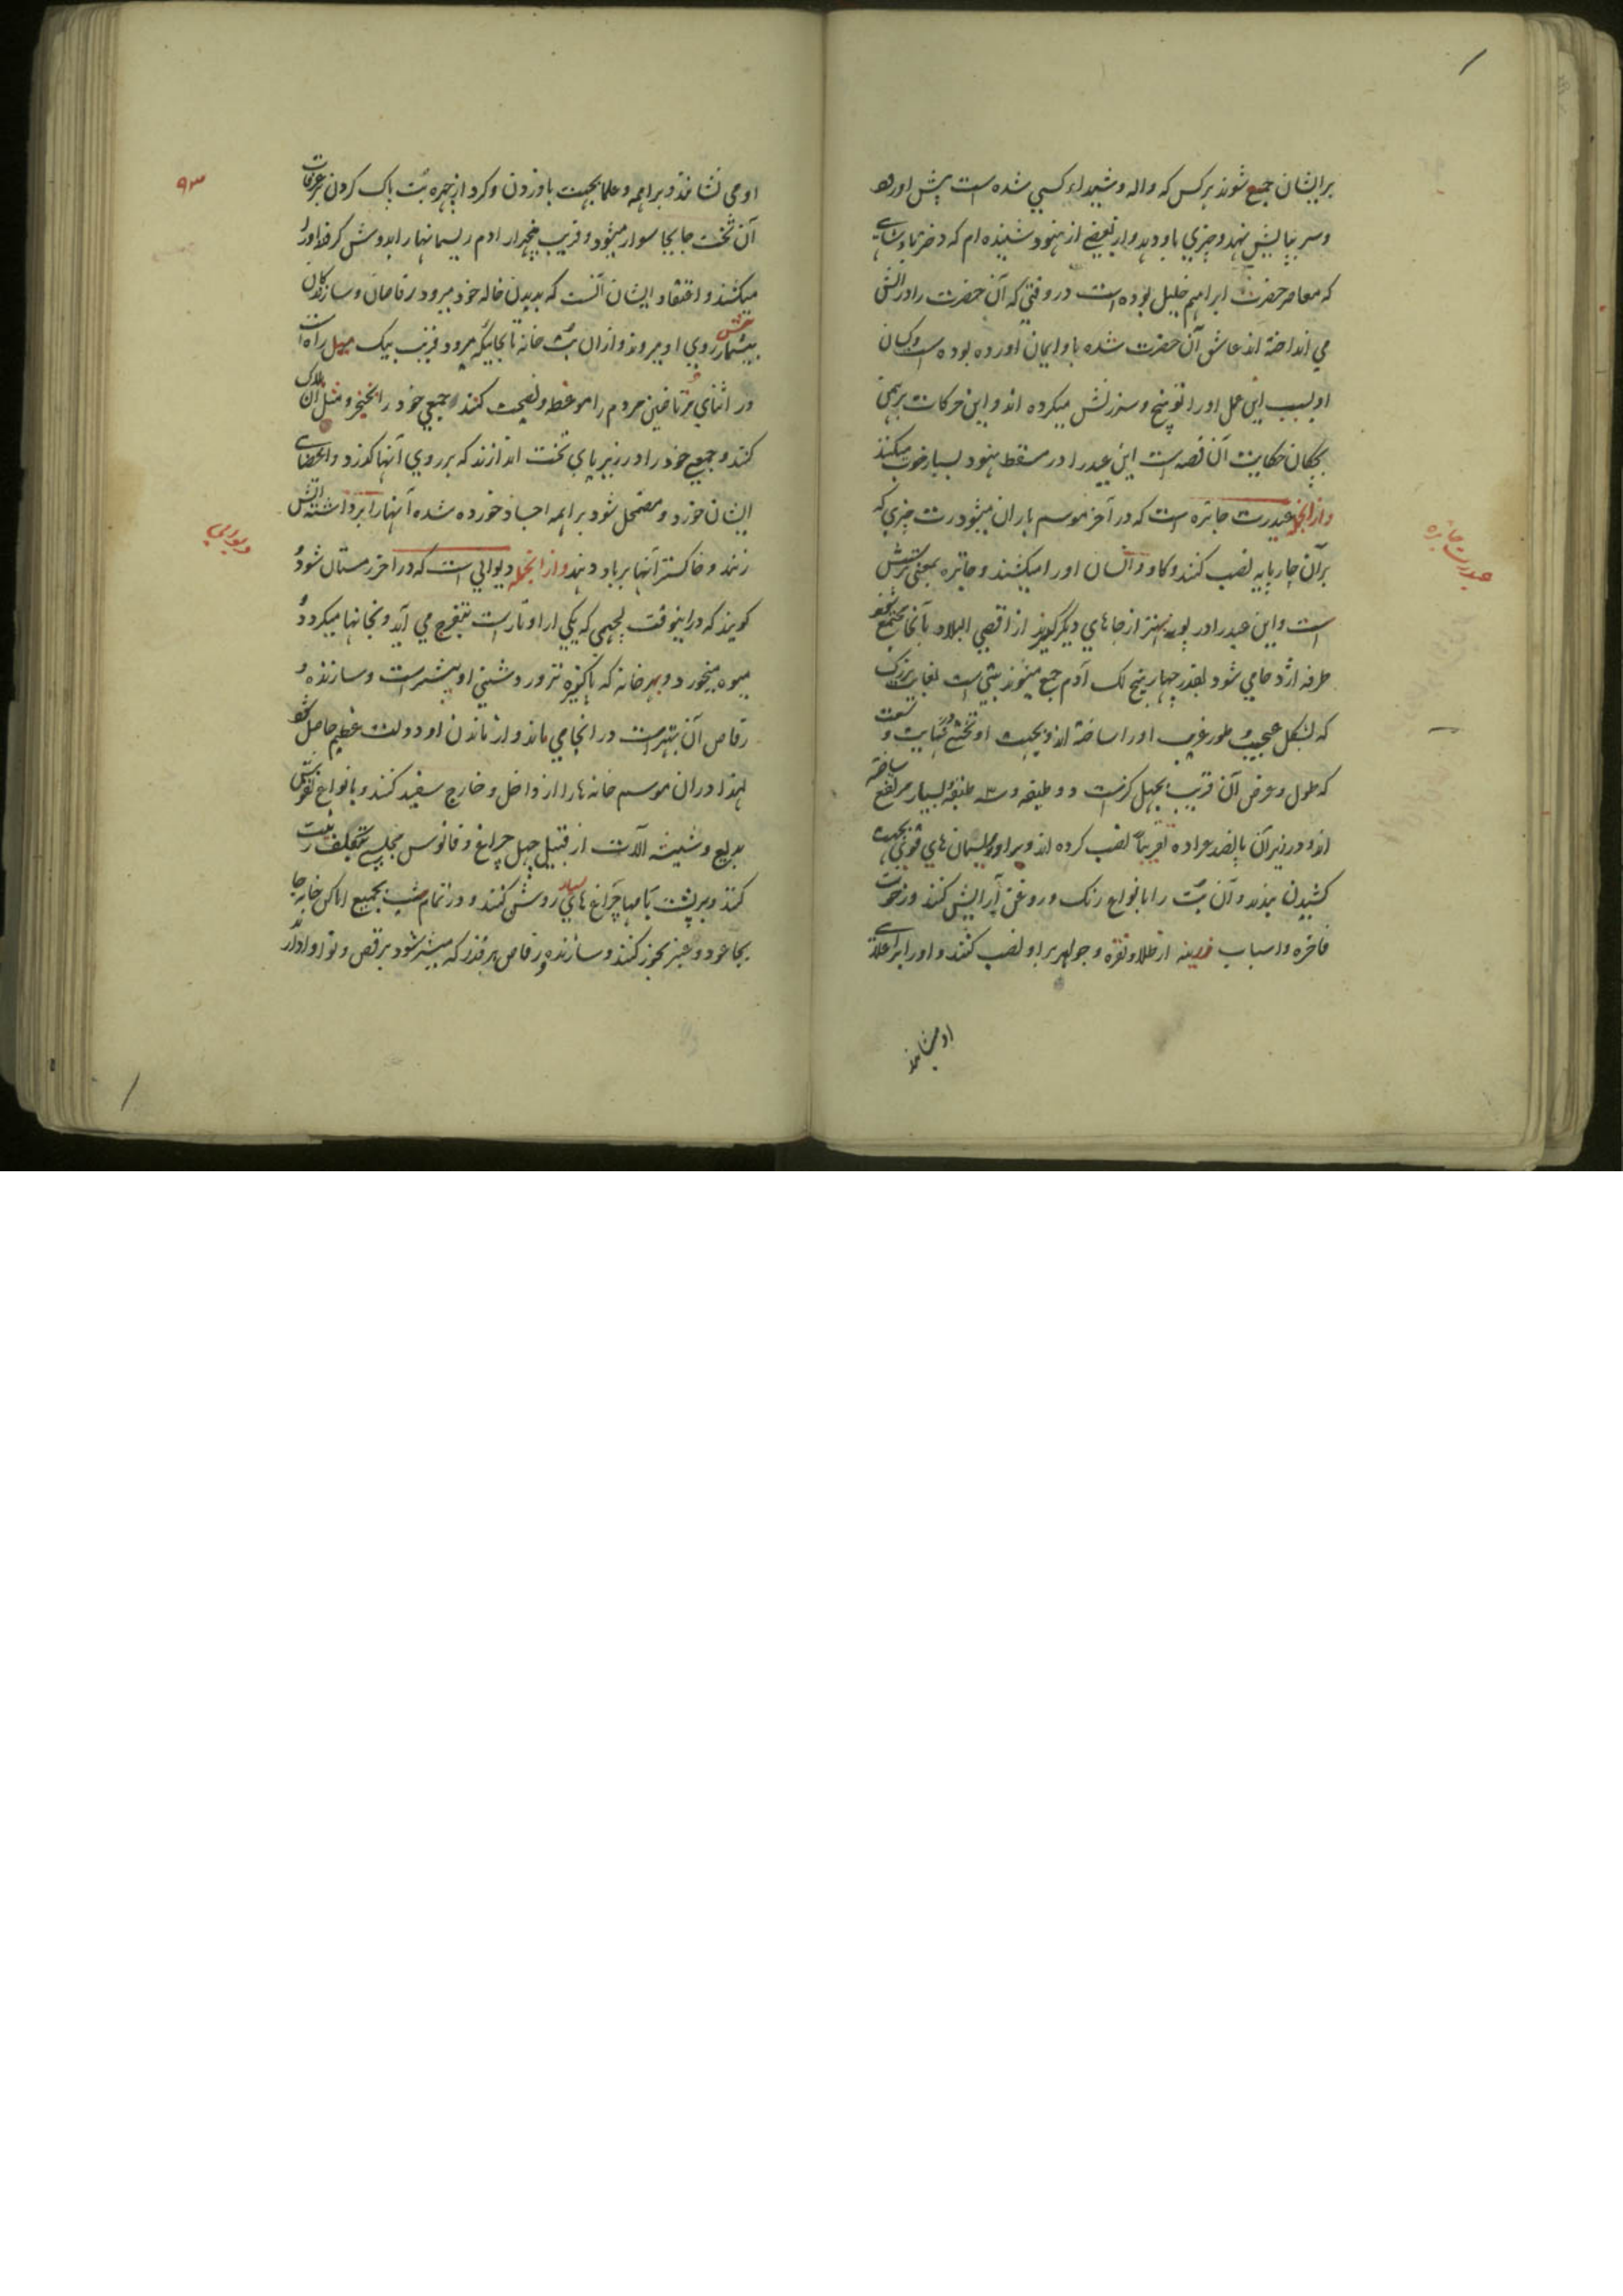 برایشان جمع شوند هر کس که واله و شیداء کسی شده است پیش اورد
و سر بپایش نهد و چیزی باو دهد و از بعضی از هنود شنیده ام که دختر پادشاهی
که معاصر حضرت ابراهیم خلیل بوده است در وقتی که آن حضرت را در اتش
می انداخته اند عاشق آن حضرت شده باو ایمان اورده بوده است و کسان
او بسبب این عمل او را توبیخ و سرزنش میکرده اند و این حرکات برهمن
بچکان حکایت آن قصه است این عید را در مسقط هنود بسیار خوب میکنند
و از انجمله عید رت جاتره است که در آخر موسم باران میشود رت چیزی که
بر آن چارپایه نصب کنند و کاو و انسان او را میکشند و جاتره بمعنی پرستش
است و این عید را در پونه بهتر از جاهای دیگر کویند از اقصی البلاد بآنجا مجتمع شود
طرفه اژدحامی شود بقدر چهار پنج لک آدم جمع میشوند بتی است بغایت بزرک
که بشکل عجیب و طور غریب او را ساخته اند و بجهت او تختی در نهایت وسعت
که طول و عرض آن قریب بچهل کز است دو طبقه و سه طبقه بسیار مرتفع ساخته
اند و در زیر آن پانصد عراده تقریبا نصب کرده اند و بر او ریسمان های قوی بجهت
کشیدن بندند و آن بت را بانواع رنک و روغن آرایش کنند و رخوت
فاخره و اسباب زرینه از طلا و نقره و جواهر بر او نصب کنند و او را بر اعلاء
او می نشانند
عید رت جاتره
۹۳
او می نشانند و براهمه و علما بجهت باد زدن و کرد از چهره بت پاک کردن بر غرفات
آن تخت جابجا سوار میشود و قریب پنجهزار ادم ریسمانها را بدوش کرفته او را
میکشند و اعتقاد ایشان انست که بدیدن خاله خود میرود رقاصان و سازندکان
بیشمار پیش روی او میروند و از ان بت خانه تا بجائیکه میرود قریب بیک میل راه است
در اثنای مرتاضین مردم را موعظه و نصیحت کنند و جمعی خود را بخنجر و مثل ان هلاک
کنند و جمعی خود را در زیر پای تخت اندازند که بر روی آنها کذرد و اعضای
ایشان خورد و مضمحل شود براهمه اجساد خورده شده آنها را برداشته اتش
زنند و خاکستر آنها بر باد دهند و از انجمله دیوالی است که در اخر زمستان شود
کویند که در اینوقت لچمی که یکی از اوتار است بتفرج می آید و بخانها میکردد
میوه میخورد و بهر خانه که پاکیزه تر و روشنی او بیشتر است و سازنده و
رقاص آن بهتر است در انجا می ماند و از ماندن او دولت عظیم حاصل شود
لهذا در ان موسم خانه ها را از داخل و خارج سفید کنند و بانواع نقوش
بدیع و شیشه آلات از قبیل چهل چراغ و فانوس مجلسی بتکلف زینت
کنند و بر پشت بامها چراغ های بسیار روشن کنند و در تمام شب بجمیع اماکن خانه جا
بجا عود و عنبر بخور کنند و سازنده و رقاص هر قدر که میسر شود برقص و نوا وادارند
دیوالی